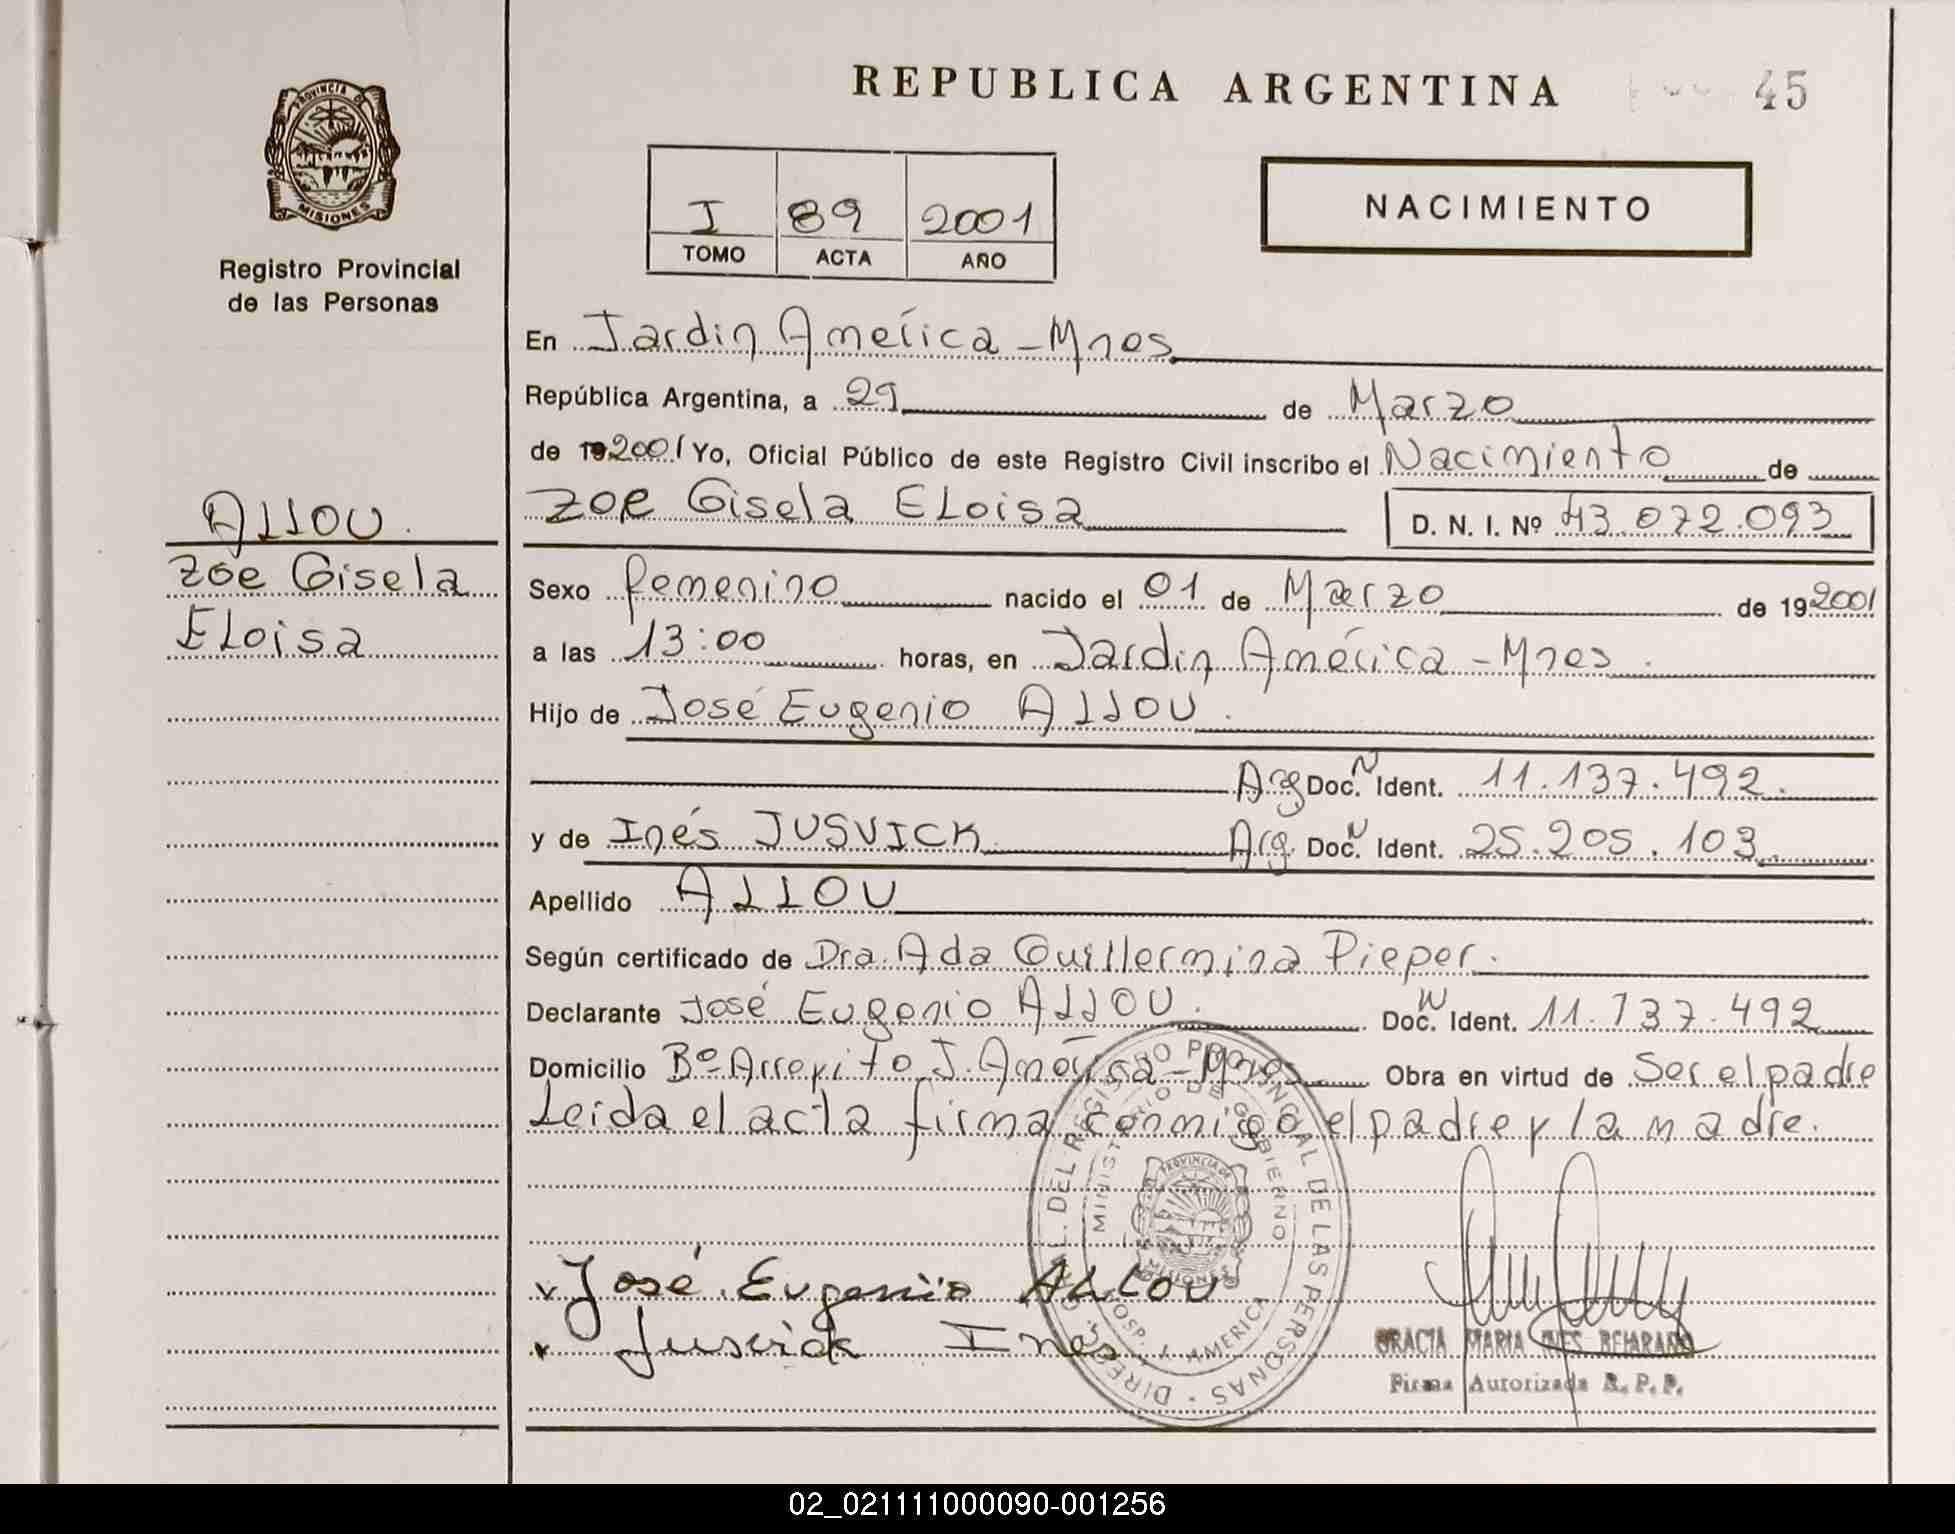 REPUBLICA ARGENTINA
45
PROVINCIA DE
MISIONES
Registro Provincial
de las Personas
I 89 2001
TOMO ACTA AÑO
NACIMIENTO
En Jardin América - Mnes
República Argentina, a 29 de Marzo
de 19 2001 Yo, Oficial Público de este Registro Civil inscribo el Nacimiento de
Zoe Gisela ELoisa D. N. I. Nº 43.072.093
ALLOU.
Zoe Gisela
ELoisa
Sexo femenino nacido el 01 de Marzo de 19 2001
a las 13:00 horas, en Jardin América - Mnes.
Hijo de José Eugenio ALLOU.
Arg Doc. N Ident. 11.137.492.
y de Inés JUSVICK Arg. Doc. N Ident. 25.205.103
Apellido ALLOU
Según certificado de Dra. Ada Guillermina Pieper.
Declarante José Eugenio ALLOU. Doc. N Ident. 11.137.492
Domicilio Bº Arroyito J. América - Mnes Obra en virtud de Ser el padre
Leida el acta firma conmigo el padre y la madre.
DIRECC. GRAL. DEL REGISTRO PROVINCIAL DE LAS PERSONAS
MINISTERIO DE GOBIERNO
PROVINCIA DE
MISIONES
HOSP. J. AMERICA
José Eugenio ALLOU
Jusvick Inés
GRACIA MARIA INES BEJARANO
Firma Autorizada R. P. P.
02_021111000090-001256